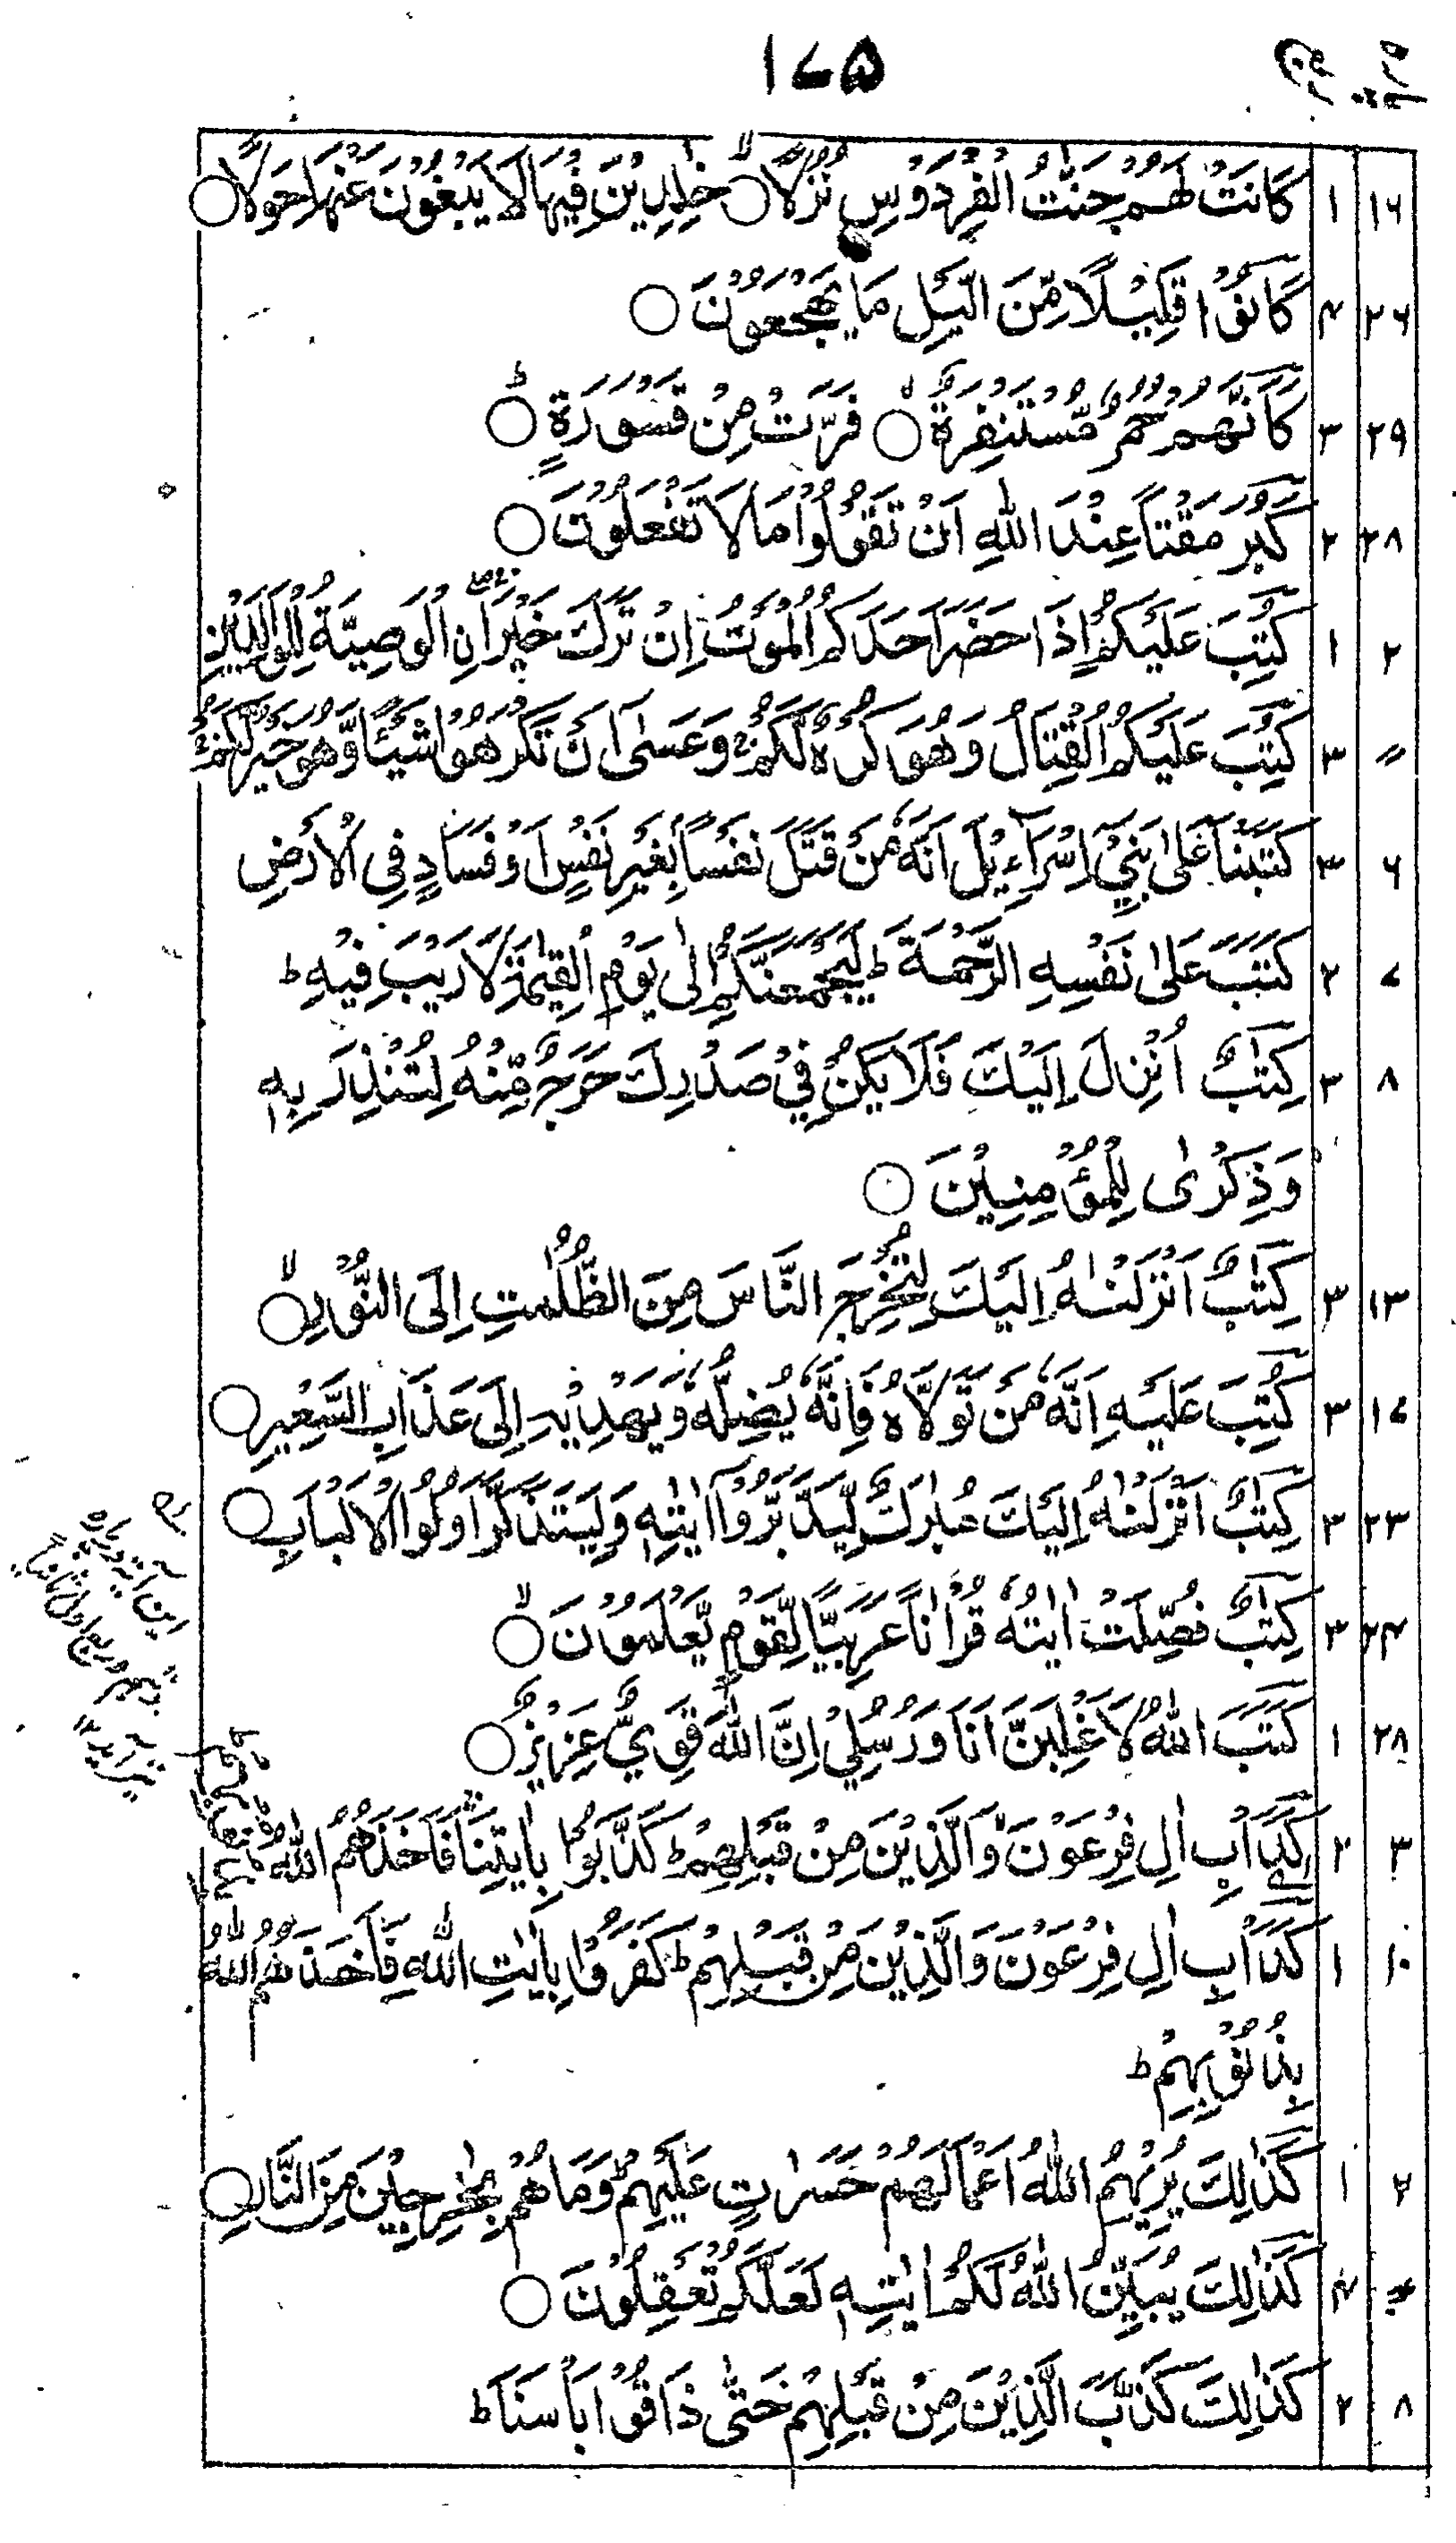 ۱۷۵
پاره ربع
۱۶ ۱ كَانَتْ لَهُمْ جَنّٰتُ الْفِرْدَوْسِ نُزُلًا ○ خٰلِدِيْنَ فِيْهَا لَا يَبْغُوْنَ عَنْهَا حِوَلًا ○
۲۶ ۴ كَانُوْا قَلِيْلًا مِّنَ الَّيْلِ مَا يَهْجَعُوْنَ ○
۲۹ ۳ كَاَنَّهُمْ حُمُرٌ مُّسْتَنْفِرَةٌ ○ فَرَّتْ مِنْ قَسْوَرَةٍ ○ ط
۲۸ ۲ كَبُرَ مَقْتًا عِنْدَ اللّٰهِ اَنْ تَقُوْلُوْا مَا لَا تَفْعَلُوْنَ ○
۲ ۱ كُتِبَ عَلَيْكُمْ اِذَا حَضَرَ اَحَدَكُمُ الْمَوْتُ اِنْ تَرَكَ خَيْرَا نِ الْوَصِيَّةُ لِلْوَالِدَيْنِ
〃 ۳ كُتِبَ عَلَيْكُمُ الْقِتَالُ وَهُوَ كُرْهٌ لَّكُمْ ج وَعَسٰى اَنْ تَكْرَهُوْا شَيْئًا وَّهُوَ خَيْرٌ لَّكُمْ ج
۶ ۳ كَتَبْنَا عَلٰى بَنِيْٓ اِسْرَآءِيْلَ اَنَّهٗ مَنْ قَتَلَ نَفْسًا بِغَيْرِ نَفْسٍ اَوْ فَسَادٍ فِى الْاَرْضِ
۷ ۲ كَتَبَ عَلٰى نَفْسِهِ الرَّحْمَةَ ط لَيَجْمَعَنَّكُمْ اِلٰى يَوْمِ الْقِيٰمَةِ لَا رَيْبَ فِيْهِ ط
۸ ۳ كِتٰبٌ اُنْزِلَ اِلَيْكَ فَلَا يَكُنْ فِيْ صَدْرِكَ حَرَجٌ مِّنْهُ لِتُنْذِرَ بِهٖ
وَذِكْرٰى لِلْمُؤْمِنِيْنَ ○
۱۳ ۳ كِتٰبٌ اَنْزَلْنٰهُ اِلَيْكَ لِتُخْرِجَ النَّاسَ مِنَ الظُّلُمٰتِ اِلَى النُّوْرِ ○ لا
۱۷ ۳ كُتِبَ عَلَيْهِ اَنَّهٗ مَنْ تَوَلَّاهُ فَاَنَّهٗ يُضِلُّهٗ وَيَهْدِيْهِ اِلٰى عَذَابِ السَّعِيْرِ ○
۲۳ ۳ كِتٰبٌ اَنْزَلْنٰهُ اِلَيْكَ مُبٰرَكٌ لِّيَدَّبَّرُوْٓا اٰيٰتِهٖ وَلِيَتَذَكَّرَ اُولُوا الْاَلْبَابِ ○
۲۴ ۳ كِتٰبٌ فُصِّلَتْ اٰيٰتُهٗ قُرْاٰنًا عَرَبِيًّا لِّقَوْمٍ يَّعْلَمُوْنَ ○ لا
۲۸ ۱ كَتَبَ اللّٰهُ لَاَغْلِبَنَّ اَنَا وَرُسُلِيْ اِنَّ اللّٰهَ قَوِيٌّ عَزِيْزٌ ○
۳ ۲ كَدَاْبِ اٰلِ فِرْعَوْنَ وَالَّذِيْنَ مِنْ قَبْلِهِمْ ط كَذَّبُوْا بِاٰيٰتِنَا فَاَخَذَهُمُ اللّٰهُ
۱۰ ۱ كَدَاْبِ اٰلِ فِرْعَوْنَ وَالَّذِيْنَ مِنْ قَبْلِهِمْ ط كَفَرُوْا بِاٰيٰتِ اللّٰهِ فَاَخَذَهُمُ اللّٰهُ
بِذُنُوْبِهِمْ ط
۲ ۱ كَذٰلِكَ يُرِيْهِمُ اللّٰهُ اَعْمَالَهُمْ حَسَرٰتٍ عَلَيْهِمْ ط وَمَا هُمْ بِخٰرِجِيْنَ مِنَ النَّارِ ○
۴ كَذٰلِكَ يُبَيِّنُ اللّٰهُ لَكُمْ اٰيٰتِهٖ لَعَلَّكُمْ تَعْقِلُوْنَ ○
۸ ۲ كَذٰلِكَ كَذَّبَ الَّذِيْنَ مِنْ قَبْلِهِمْ حَتّٰى ذَاقُوْا بَاْسَنَا ط